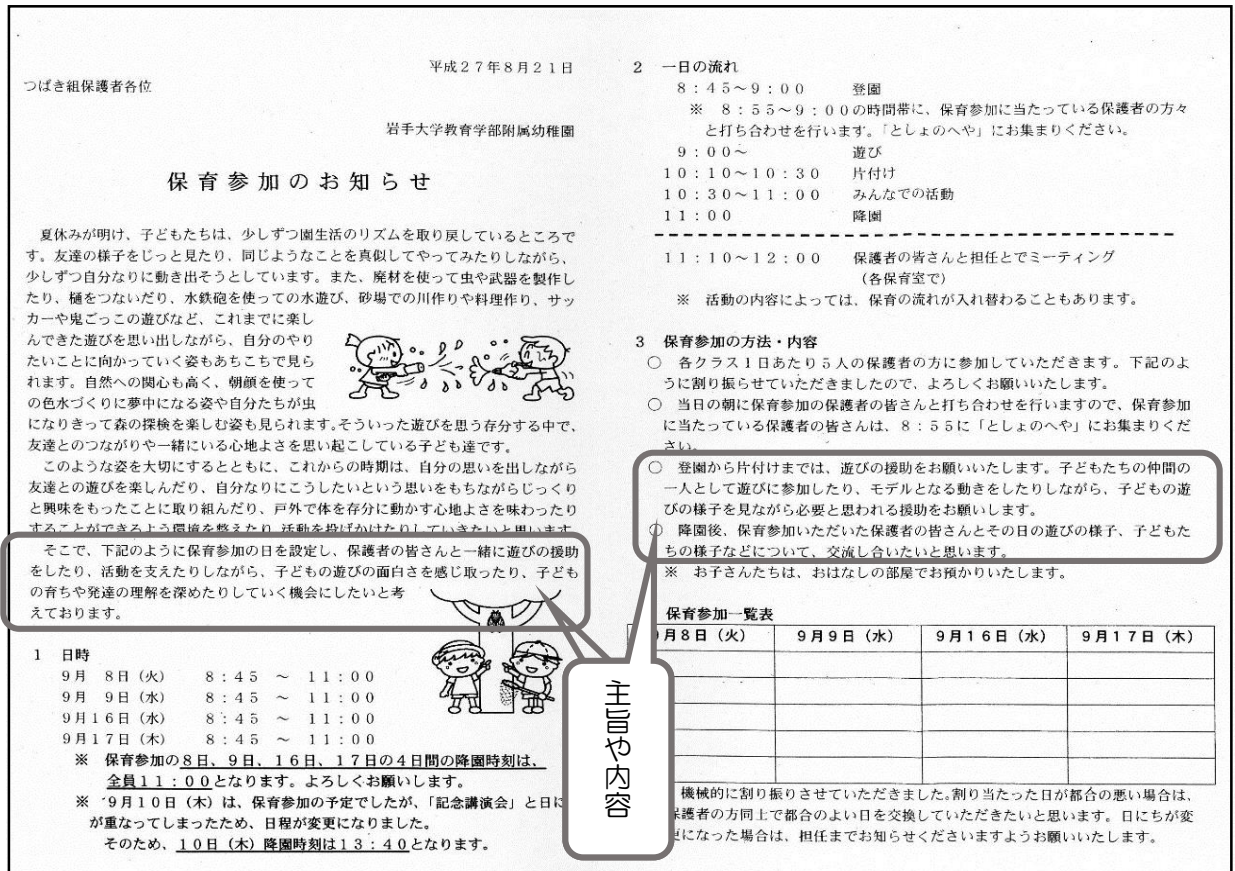 平成27年8月21日
つばき組保護者各位
岩手大学教育学部附属幼稚園
保育参加のお知らせ
夏休みが明け、子どもたちは、少しずつ園生活のリズムを取り戻しているところで
す。友達の様子をじっと見たり、同じようなことを真似してやってみたりしながら、
少しずつ自分なりに動き出そうとしています。また、廃材を使って虫や武器を製作し
たり、樋をつないだり、水鉄砲を使っての水遊び、砂場での川作りや料理作り、サッ
カーや鬼ごっこの遊びなど、これまでに楽し
んできた遊びを思い出しながら、自分のやり
たいことに向かっていく姿もあちこちで見ら
れます。自然への関心も高く、朝顔を使って
の色水づくりに夢中になる姿や自分たちが虫
になりきって森の探検を楽しむ姿も見られます。そういった遊びを思う存分する中で、
友達とのつながりや一緒にいる心地よさを思い起こしている子ども達です。
このような姿を大切にするとともに、これからの時期は、自分の思いを出しながら
友達との遊びを楽しんだり、自分なりにこうしたいという思いをもちながらじっくり
と興味をもったことに取り組んだり、戸外で体を存分に動かす心地よさを味わったり
することができるよう環境を整えたり、活動を投げかけたりしていきたいと思います。
そこで、下記のように保育参加の日を設定し、保護者の皆さんと一緒に遊びの援助
をしたり、活動を支えたりしながら、子どもの遊びの面白さを感じ取ったり、子ども
の育ちや発達の理解を深めたりしていく機会にしたいと考
えております。
1 日時
9月 8日(火) 8:45 ~ 11:00
9月 9日(水) 8:45 ~ 11:00
9月16日(水) 8:45 ~ 11:00
9月17日(木) 8:45 ~ 11:00
※ 保育参加の8日、9日、16日、17日の4日間の降園時刻は、
全員11:00となります。よろしくお願いします。
※ 9月10日(木)は、保育参加の予定でしたが、「記念講演会」と日に
が重なってしまったため、日程が変更になりました。
そのため、10日(木)降園時刻は13:40となります。
2 一日の流れ
8:45~9:00 登園
※ 8:55~9:00の時間帯に、保育参加に当たっている保護者の方々
と打ち合わせを行います。「としょのへや」にお集まりください。
9:00~ 遊び
10:10~10:30 片付け
10:30~11:00 みんなでの活動
11:00 降園
11:10~12:00 保護者の皆さんと担任とでミーティング
(各保育室で)
※ 活動の内容によっては、保育の流れが入れ替わることもあります。
3 保育参加の方法・内容
○ 各クラス1日あたり5人の保護者の方に参加していただきます。下記のよ
うに割り振らせていただきましたので、よろしくお願いいたします。
○ 当日の朝に保育参加の保護者の皆さんと打ち合わせを行いますので、保育参加
に当たっている保護者の皆さんは、8:55に「としょのへや」にお集まりくだ
さい。
○ 登園から片付けまでは、遊びの援助をお願いいたします。子どもたちの仲間の
一人として遊びに参加したり、モデルとなる動きをしたりしながら、子どもの遊
びの様子を見ながら必要と思われる援助をお願いします。
○ 降園後、保育参加いただいた保護者の皆さんとその日の遊びの様子、子どもた
ちの様子などについて、交流し合いたいと思います。
※ お子さんたちは、おはなしの部屋でお預かりいたします。
保育参加一覧表
月8日(火) 9月9日(水) 9月16日(水) 9月17日(木)
機械的に割り振りさせていただきました。割り当たった日が都合の悪い場合は、
保護者の方同士で都合のよい日を交換していただきたいと思います。日にちが変
更になった場合は、担任までお知らせくださいますようお願いいたします。
主旨や内容